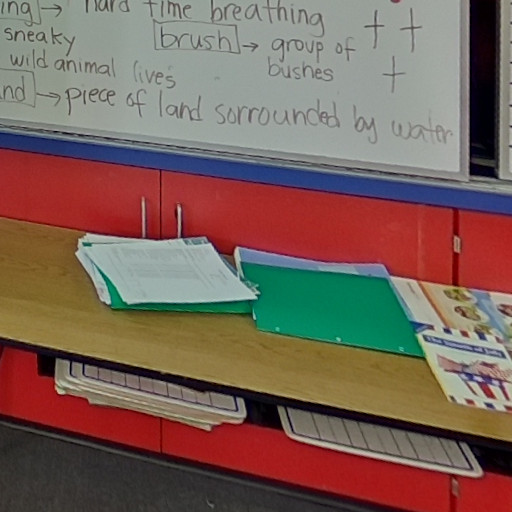 ing → hard time breathing
sneaky
brush → group of
bushes
wild animal lives
nd → piece of land sorrounded by water